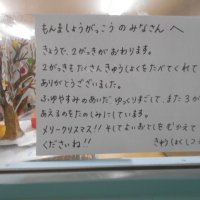 もんましょうがっこうのみなさん へ
きょうで、2がっきがおわります。
2がっきもたくさんきゅうしょくをたべてくれて
ありがとうございました。
ふゆやすみのあいだ ゆっくりすごして、また3が
あえるのをたのしみにしています。
メリークリスマス!! そしてよいおとしを むかえて
くださいね!!
きゅうしょくしつ